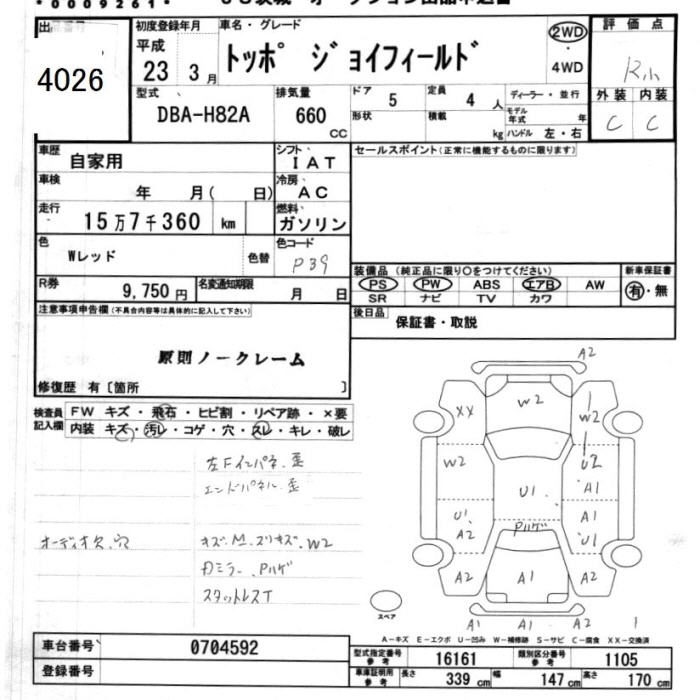 初度登録年月
平成
23 3 月
車名・グレード
トッポ ジョイフィールド
2WD
・
4WD
評 価 点
R小
外装 内装
C C
4026
型式
DBA-H82A
排気量
660
CC
ドア 5
定員 4 人
形状
積載 kg
ディーラー・並行
モデル年式 年
ハンドル 左・右
車歴
自家用
シフト
IAT
車検
年 月( 日)
冷房
AC
走行
15万7千360 km
燃料
ガソリン
色
Wレッド
色替
色コード
P39
R券
9,750 円
名変通知期限
月 日
セールスポイント(正常に機能するものに限ります)
装備品 (純正品に限り○をつけてください)
PS PW ABS エアB AW
SR ナビ TV カワ
新車保証書
有・無
後日品
保証書・取説
注意事項申告欄(不具合内容等は具体的に記入して下さい)
原則ノークレーム
修復歴 有〔箇所 〕
検査員記入欄
FW キズ・飛石・ヒビ割・リペア跡・×要
内装 キズ・汚レ・コゲ・穴・スレ・キレ・破レ
左Fインパネ.歪
エンドパネル.歪
オーディオ欠.穴
キズ.M.スリキズ.W2
カミラー.Pハゲ
スタットレスT
A2
XX
W2
W2
W2
U2
A1
U1
U1
A2
A1
U1
Pハゲ
A2
A1
A2
A1
A1
A2
スペア
A－キズ E－エクボ U－凹み W－補修跡 S－サビ C－腐食 XX－交換済
車台番号
0704592
登録番号
型式指定番号
参考
16161
類別区分番号
参考
1105
車庫証明用
参考
長さ 339 cm
幅 147 cm
高さ 170 cm